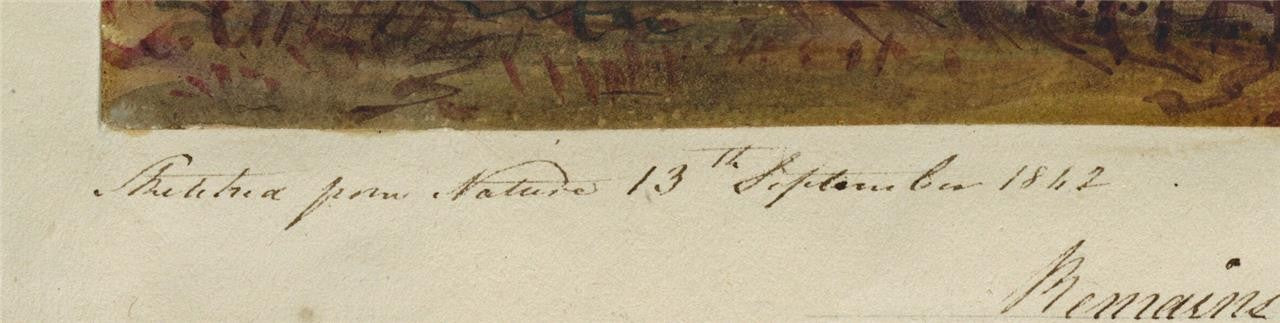 Sketched from Nature 13th September 1842
Remains